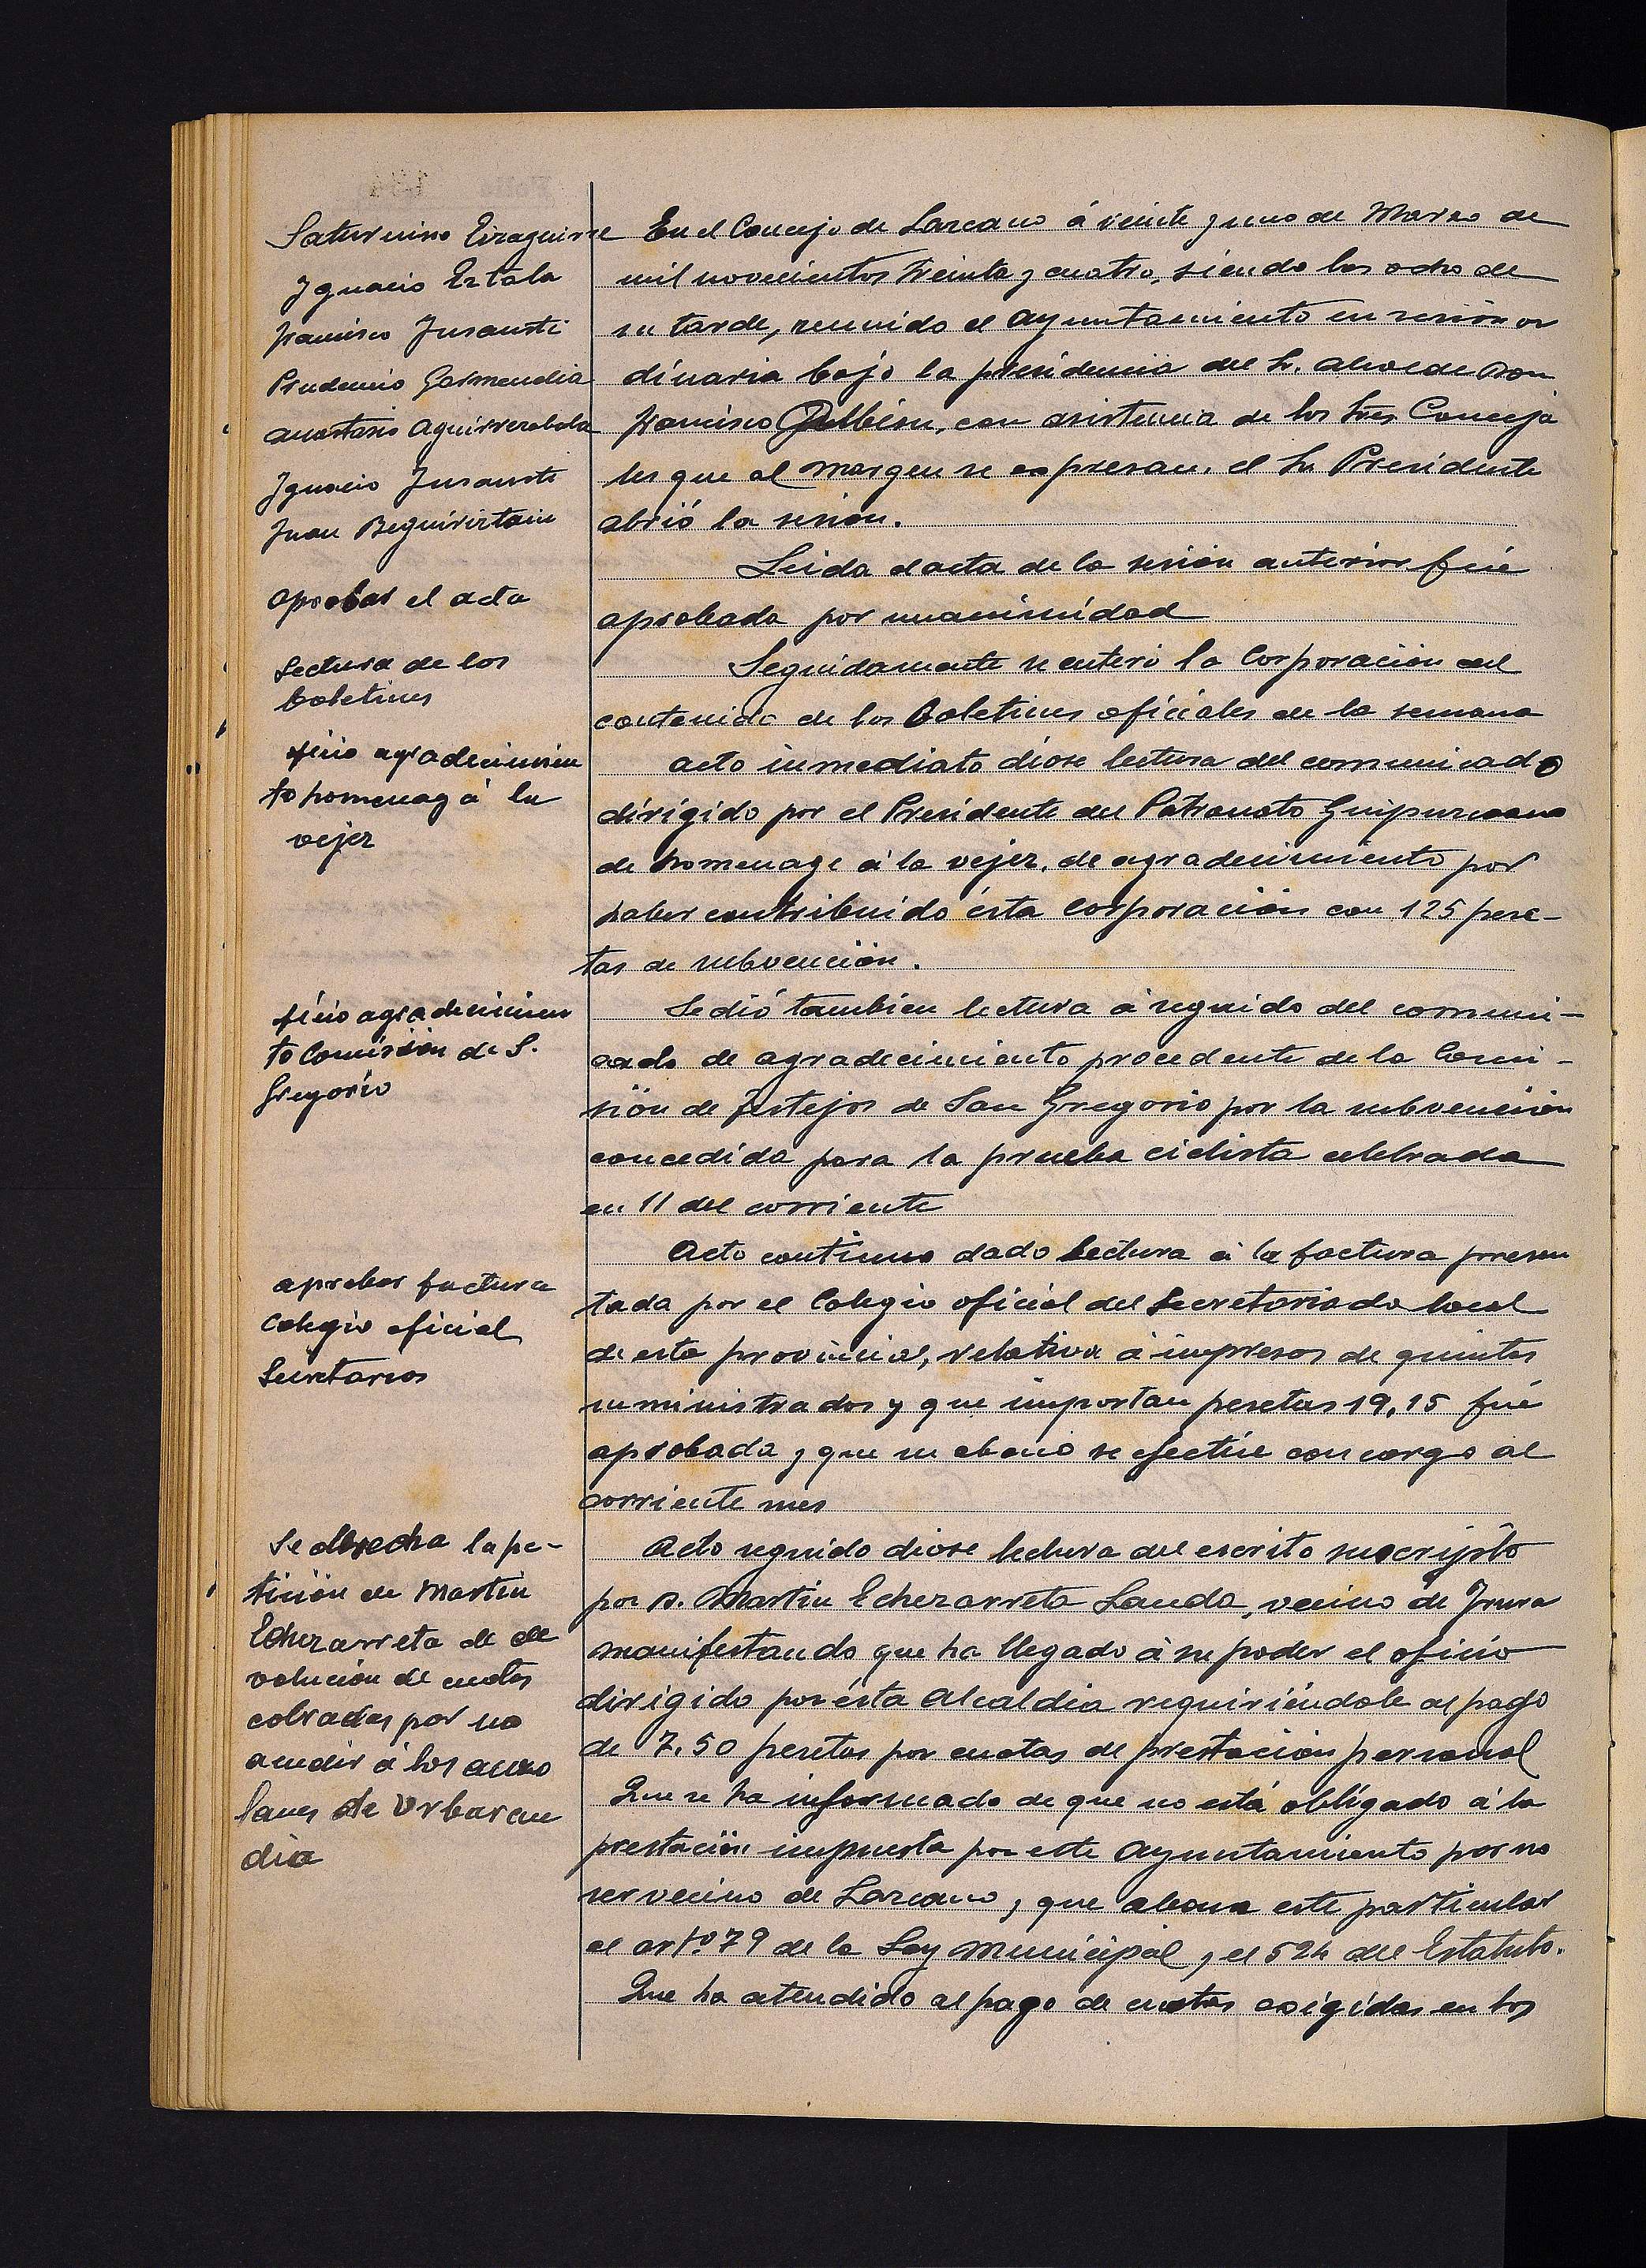 Saturnino Eizaguirre
Ygnacio Estala
Francisco Jusausti
Prudencio Garmendia
Anastasio Aguirrezabala
Ygnacio Jusausti
Juan Beguiristain
Aprobar el acta
Lectura de los
boletines
oficio agradecimien
to homenag á la
vejez
oficio agradecimien
to Comisión de S.
Gregorio
aprobar factura
Colegio oficial
Secretarios
Se desecha la pe-
tición de Martin
Echezarreta de de
volución de cuotas
cobradas por no
acudir á los auzo
lanes de Urbaran
dia
En el Concejo de Lazcano á veinte y uno de Marzo de
mil novecientos treinta y cuatro, siendo las ocho de
su tarde, reunido el Ayuntamiento en sesión or
dinaria bajo la presidencia del Sr. Alcalde Don
Francisco, con asistencia de los Sres Conceja
les que al margen se expresan. el Sr. Presidente
abrió la sesión.
Leida el acta de la sesión anterior fué
aprobada por unanimidad
Seguidamente se enteró la Corporación del
contenido de los Boletines oficiales de la semana
acto inmediato diose lectura del comunicado
dirigido por el Presidente del Patronato Guipuzcoano
de homenage á la vejez, de agradecimiento por
haber contribuido ésta Corporación con 125 pese-
tas de subvención.
Se dió tambien lectura á seguido del comuni-
cado de agradecimiento procedente de la Comi-
sión de festejos de San Gregorio por la subvención
concedida para la prueba ciclista celebrada
en 11 del corriente
Acto continuo dado lectura á la factura presen
tada por el Colegio oficial del Secretariado local
de esta provincia, relativa á impresos de quintas
suministrados y que importan pesetas 19,15 fué
aprobada y que su abono se efectúe con cargo al
corriente mes
Acto seguido diose lectura del escrito suscripto
por D. Martin Echezarreta Landa, vecino de Irura
manifestando que ha llegado á su poder el oficio
dirigido por ésta Alcaldia requiriéndole al pago
de 7.50 pesetas por cuotas de prestación personal
Que se ha informado de que no está obligado á la
prestación impuesta por este Ayuntamiento por no
ser vecino de Lazcano, y que abona este particular
el artº. 79 de la Ley Municipal, y el 524 del Estatuto.
Que ha atendido al pago de cuotas exigidas en los